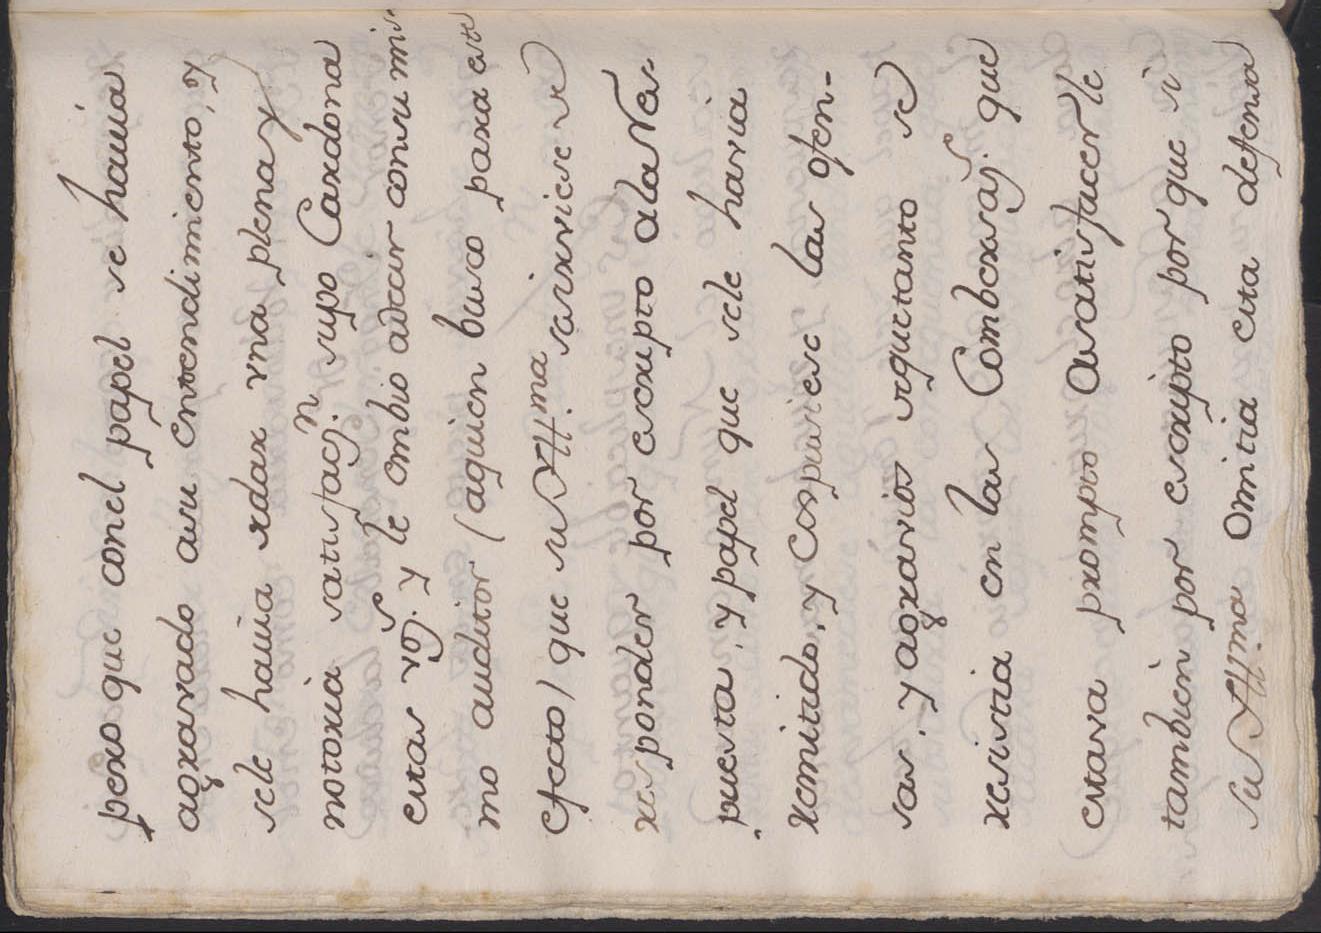 pero que con el papel se hauia
agravado a su Entendimiento, y
sele hauia rdar vna plena y
notoria satisfacj.n supo Cardona
estas voz.s y le embio a decir con su mis
mo auditor (a quien busco para este
efecto) que su Yll.ma se sirviese re
responder por escripto a la Res-
puesta, y papel que sele havia
Remitido, y Corpuviese las ofen-
sas, y agravios rquetanto se
resistia en las Combersaz.s que
estava prompto a satisfacerle
tambien por escripto por que si
su Yll.ma Omitia esta defensa